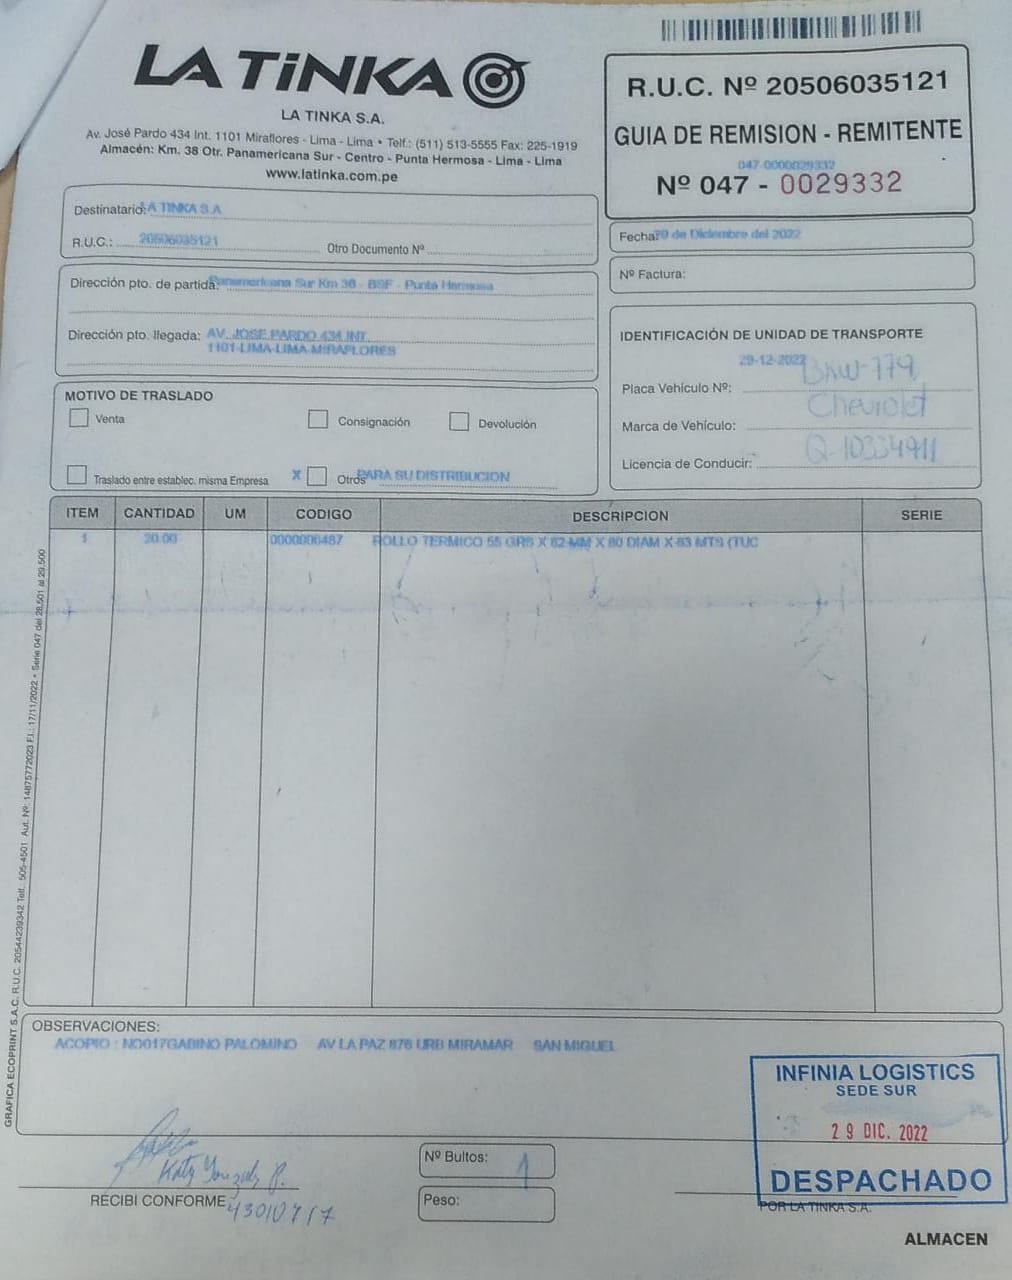 LA TiNKA
LA TINKA S.A.
Av. José Pardo 434 Int. 1101 Miraflores - Lima - Lima • Telf.: (511) 513-5555 Fax: 225-1919
Almacén: Km. 38 Otr. Panamericana Sur - Centro - Punta Hermosa - Lima - Lima
www.latinka.com.pe
R.U.C. Nº 20506035121
GUIA DE REMISION - REMITENTE
047-0000029332
Nº 047 - 0029332
Destinatario: LA TINKA S.A
R.U.C.: 20506035121 Otro Documento Nº
Fecha: 29 de Diciembre del 2022
Nº Factura:
Dirección pto. de partida: Panamericana Sur Km 38 - BSF - Punta Hermosa
Dirección pto. llegada: AV. JOSE PARDO 434 INT.
1101-LIMA-LIMA-MIRAFLORES
IDENTIFICACIÓN DE UNIDAD DE TRANSPORTE
29-12-2022
Placa Vehículo Nº: BKW-779
Marca de Vehículo: Chevrolet
Licencia de Conducir: Q-10334911
MOTIVO DE TRASLADO
Venta Consignación Devolución
Traslado entre establec. misma Empresa X Otros PARA SU DISTRIBUCION
ITEM CANTIDAD UM CODIGO DESCRIPCION SERIE
1 20.00 0000006487 ROLLO TERMICO 55 GRS X 82 MM X 80 DIAM X 83 MTS (TUC
GRAFICA ECOPRINT S.A.C. R.U.C. 20544239342 Telf.: 505-4501 Aut. Nº: 14875772023 F.I.: 17/11/2022 • Serie 047 del 28,501 al 29,500
OBSERVACIONES:
ACOPIO : NO017GABINO PALOMINO AV LA PAZ 876 URB MIRAMAR SAN MIGUEL
INFINIA LOGISTICS
SEDE SUR
29 DIC. 2022
DESPACHADO
Katy Gonzales P.
RECIBI CONFORME
43010717
Nº Bultos: 1
Peso:
POR LA TINKA S.A.
ALMACEN